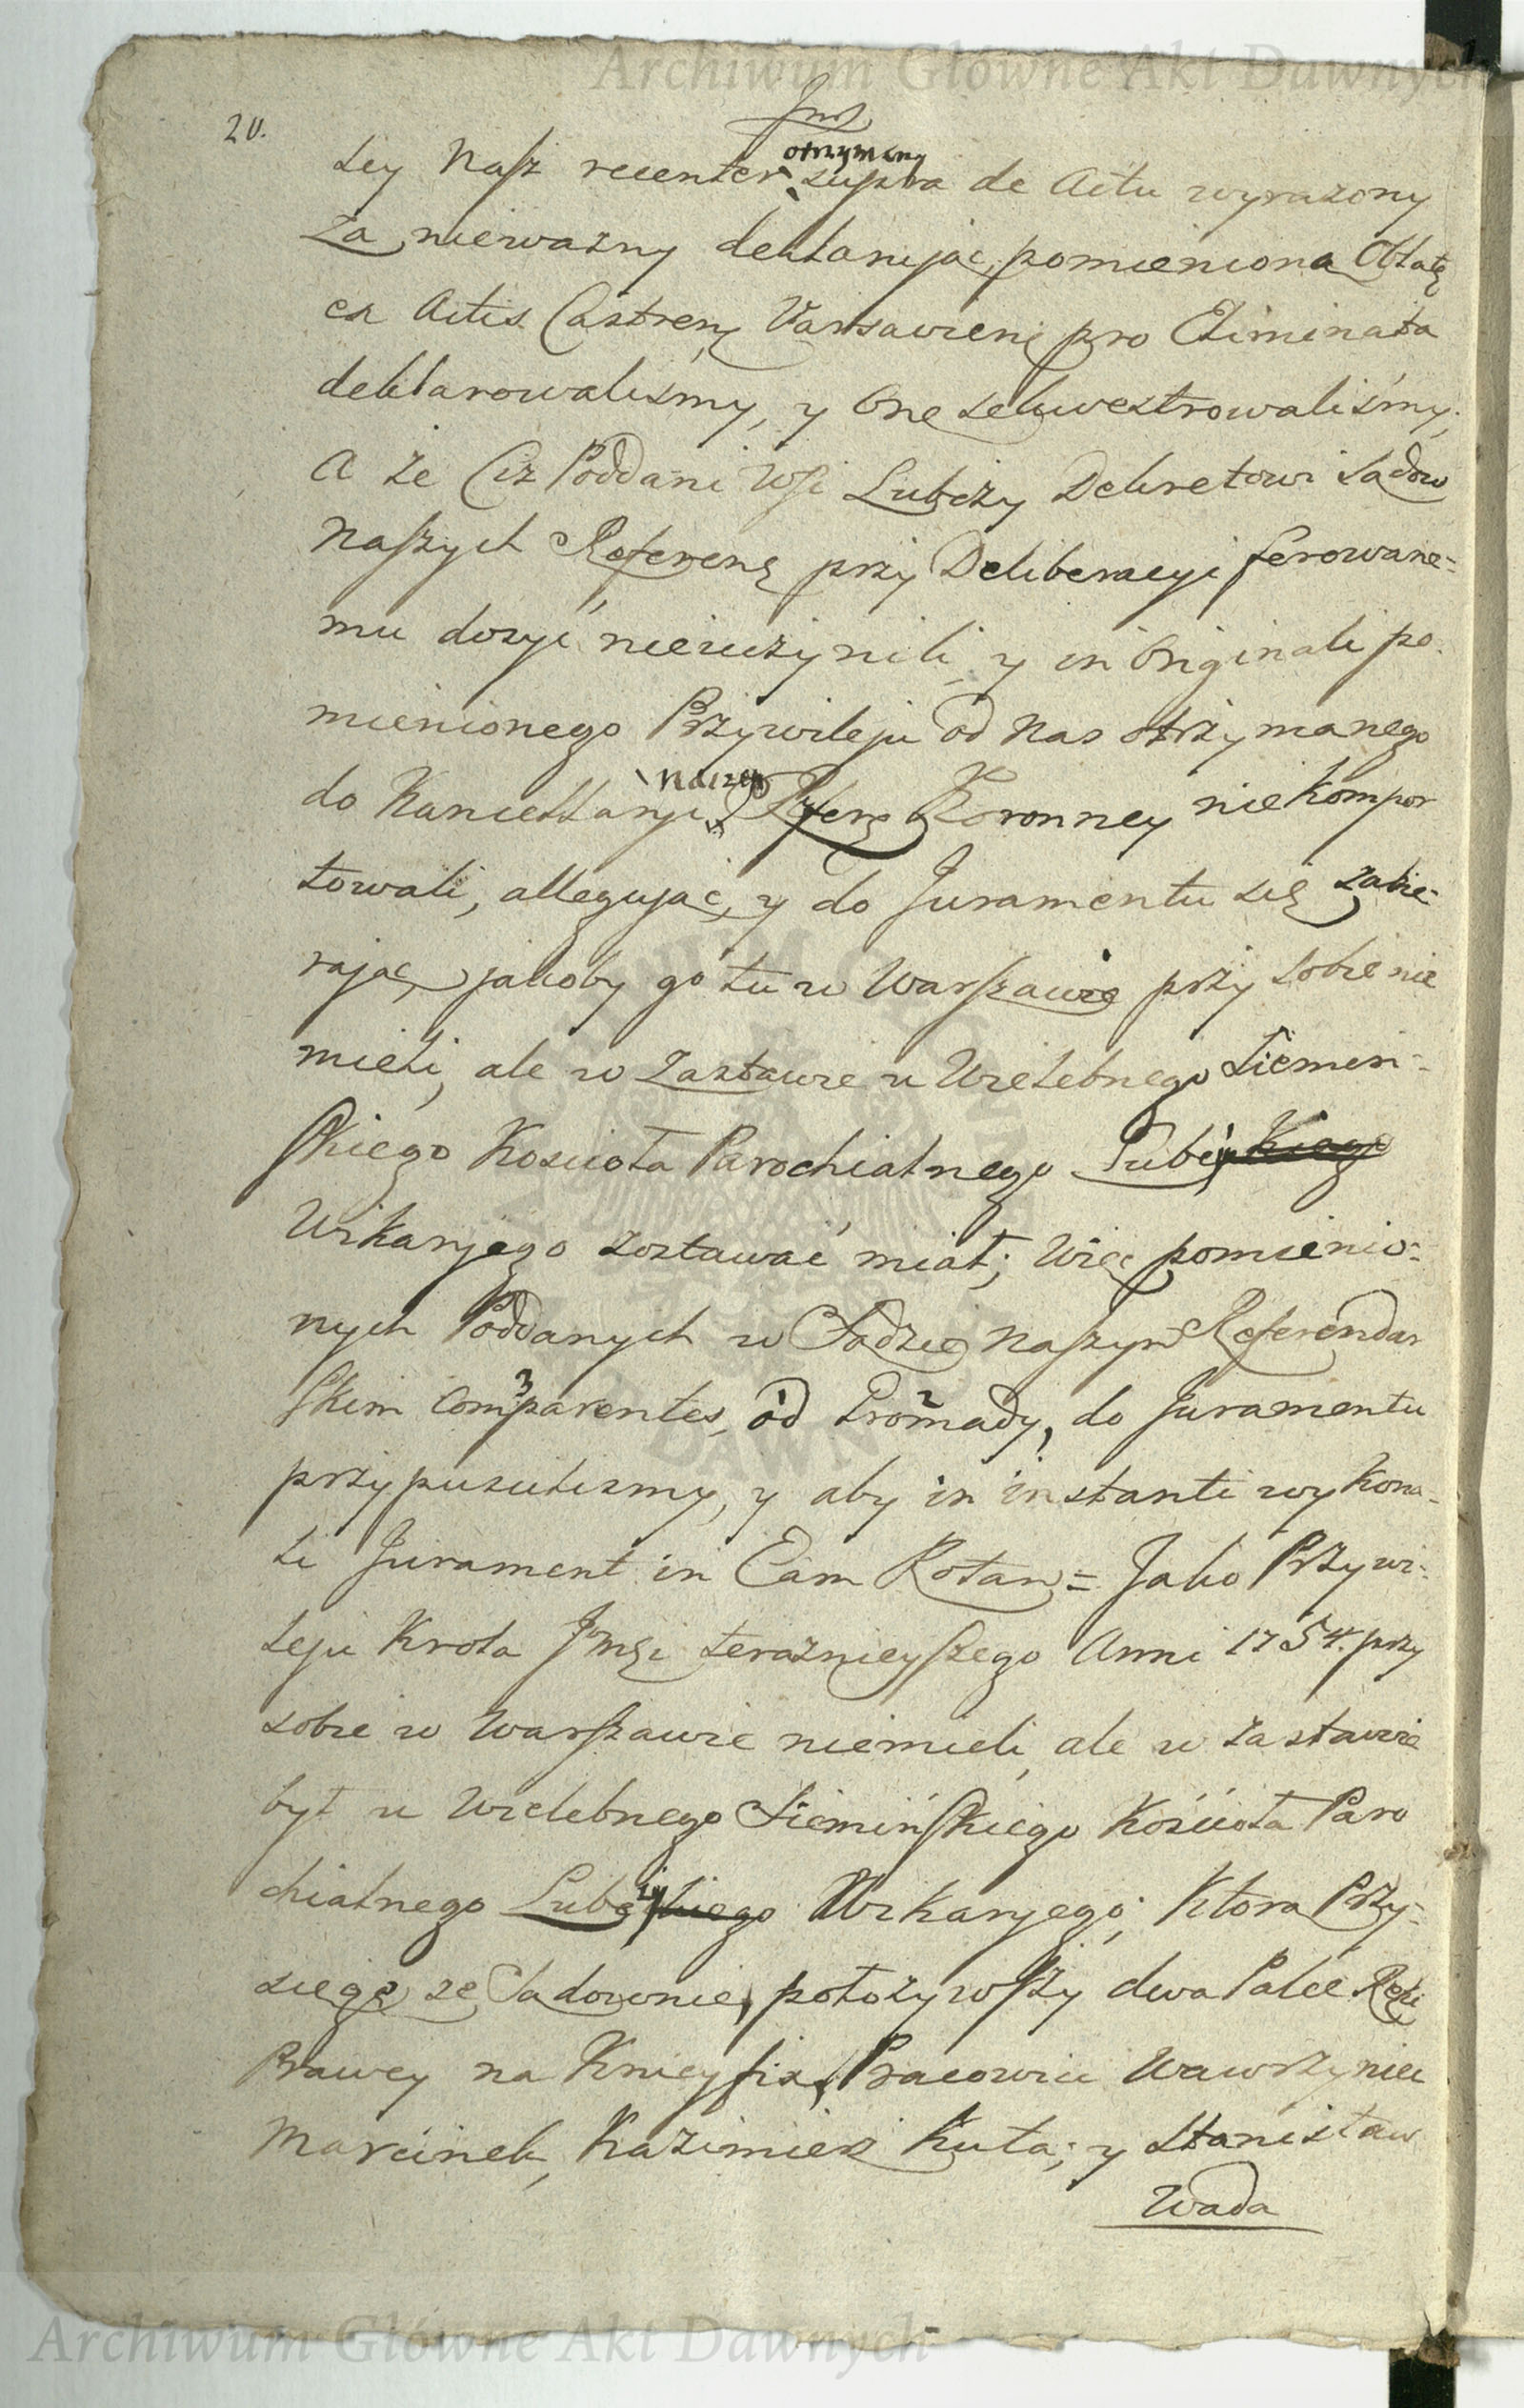 Archiwum Główne Akt Dawnych
20.
Jms
otrzymany
ley Nasz recenter supra de Actu wyrazony
za niewazny deklarując, pomieniona Oblatę
ex Actis Castreng Varsavieng pro Eliminata
deklarowalismy, y One sekwestrowaliśmy.
A że Ciż Poddani Wsi Lubczy Dekretowi Sądow
Naszych Referenę przy Deliberacyi ferowane=
mu dosyć nieuczynili, y in Originali po=
mienionego Przywileju od Nas otrzymanego
naszey
do Kancellaryi Referę Koronney nie kompor
towali, allegując, y do Juramentu się zabie=
rając, jakoby go tu w Warszawie przy sobie nie
mieli, ale w Zastawie u Wielebnego Siemien=
skiego Koscioła Parochialnego Lubc
Wikaryego zostawać miał; Więc pomienio=
nych Poddanych w Sądzie naszym Referendar
skim comparentes, od Gromady, do Juramentu
3 1 2
przypuscilismy, y aby in instanti wykona=
li Jurament in Eam Rotam = Jako Przywi=
leju Krola Jmsi teraznieyszego Anni 1754. przy
sobie w Warszawie niemieli, ale w zastawie
był u Wielebnego Siemińskiego Kościoła Paro
chialnego Lubc Wikaryego; Ktora Przy=
sięgę ze Sądownie, położywszy dwa Palce Ręki
Prawey na Krucyfix, Pracowici Wawrzyniec
Marcinek, Kazimierz Kuta; y Stanisław
Wada
Archiwum Główne Akt Dawnych